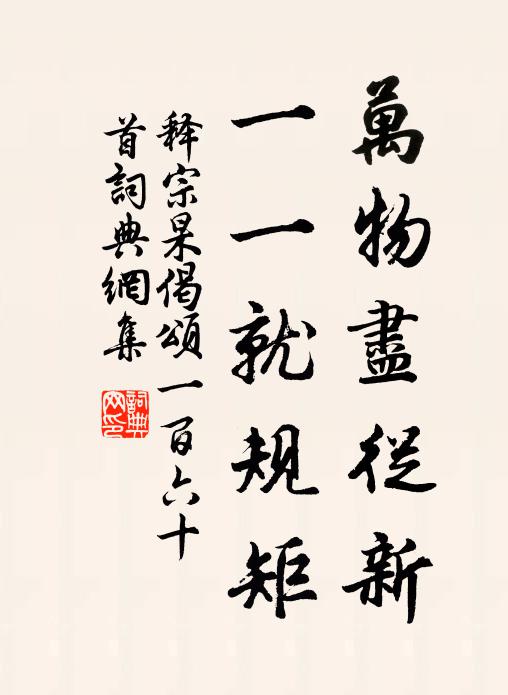 萬物盡從新
一一就規矩
释宗杲偈頌一百六十
首詞典網集
詞典网印